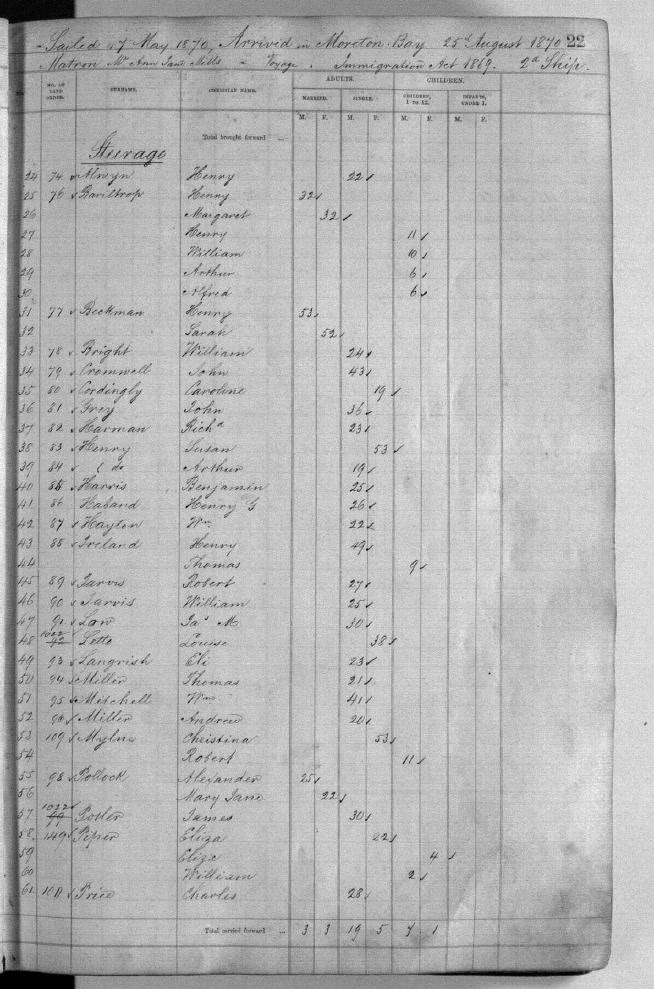 Sailed 7 May 1870, Arrived in Moreton Bay 25d August 1870 22
Matron Ms Ann Jane Mills = Voyage. Immigration Act 1869. 2a Ship.
ADULTS. CHILDREN.
NO. OF LAND ORDER. SURNAME. CHRISTIAN NAME. MARRIED. SINGLE. CHILDREN, 1 TO 12. INFANTS, UNDER 1.
M. F. M. F. M. F. M. F.
Total brought forward ...
Steerage
24 74 Alwyn Henry 22
25 76 Bariltrop Henry 32
26 Margaret 32
27 Henry 11
28 William 10
29 Arthur 6
30 Alfred 6
31 77 Beckman Henry 53
32 Sarah 52
33 78 Bright William 24
34 79 Cromwell John 43
35 80 Cordingly Caroline 19
36 81 Grey John 36
37 82 Harman Richd 23
38 83 Henry Susan 53
39 84 do Arthur 19
40 85 Harris Benjamin 25
41 86 Haband Henry G 26
42 87 Hayton Wm 22
43 88 Ireland Henry 49
44 Thomas 9
45 89 Jarvis Robert 27
46 90 Jarvis William 25
47 91 Law Jas M 30
48 1022 92 Lette Louise 38
49 93 Langrish Eli 23
50 94 Miller Thomas 21
51 95 Mitchell Wm 41
52 96 Miller Andrew 20
53 109 Mylne Christina 53
54 Robert 11
55 98 Pollock Alexander 25
56 Mary Jane 22
57 1022 99 Potter James 30
58 149 Piper Eliza 22
59 Eliza 4
60 William 2
61 101 Price Charles 28
Total carried forward ... 3 3 19 5 7 1